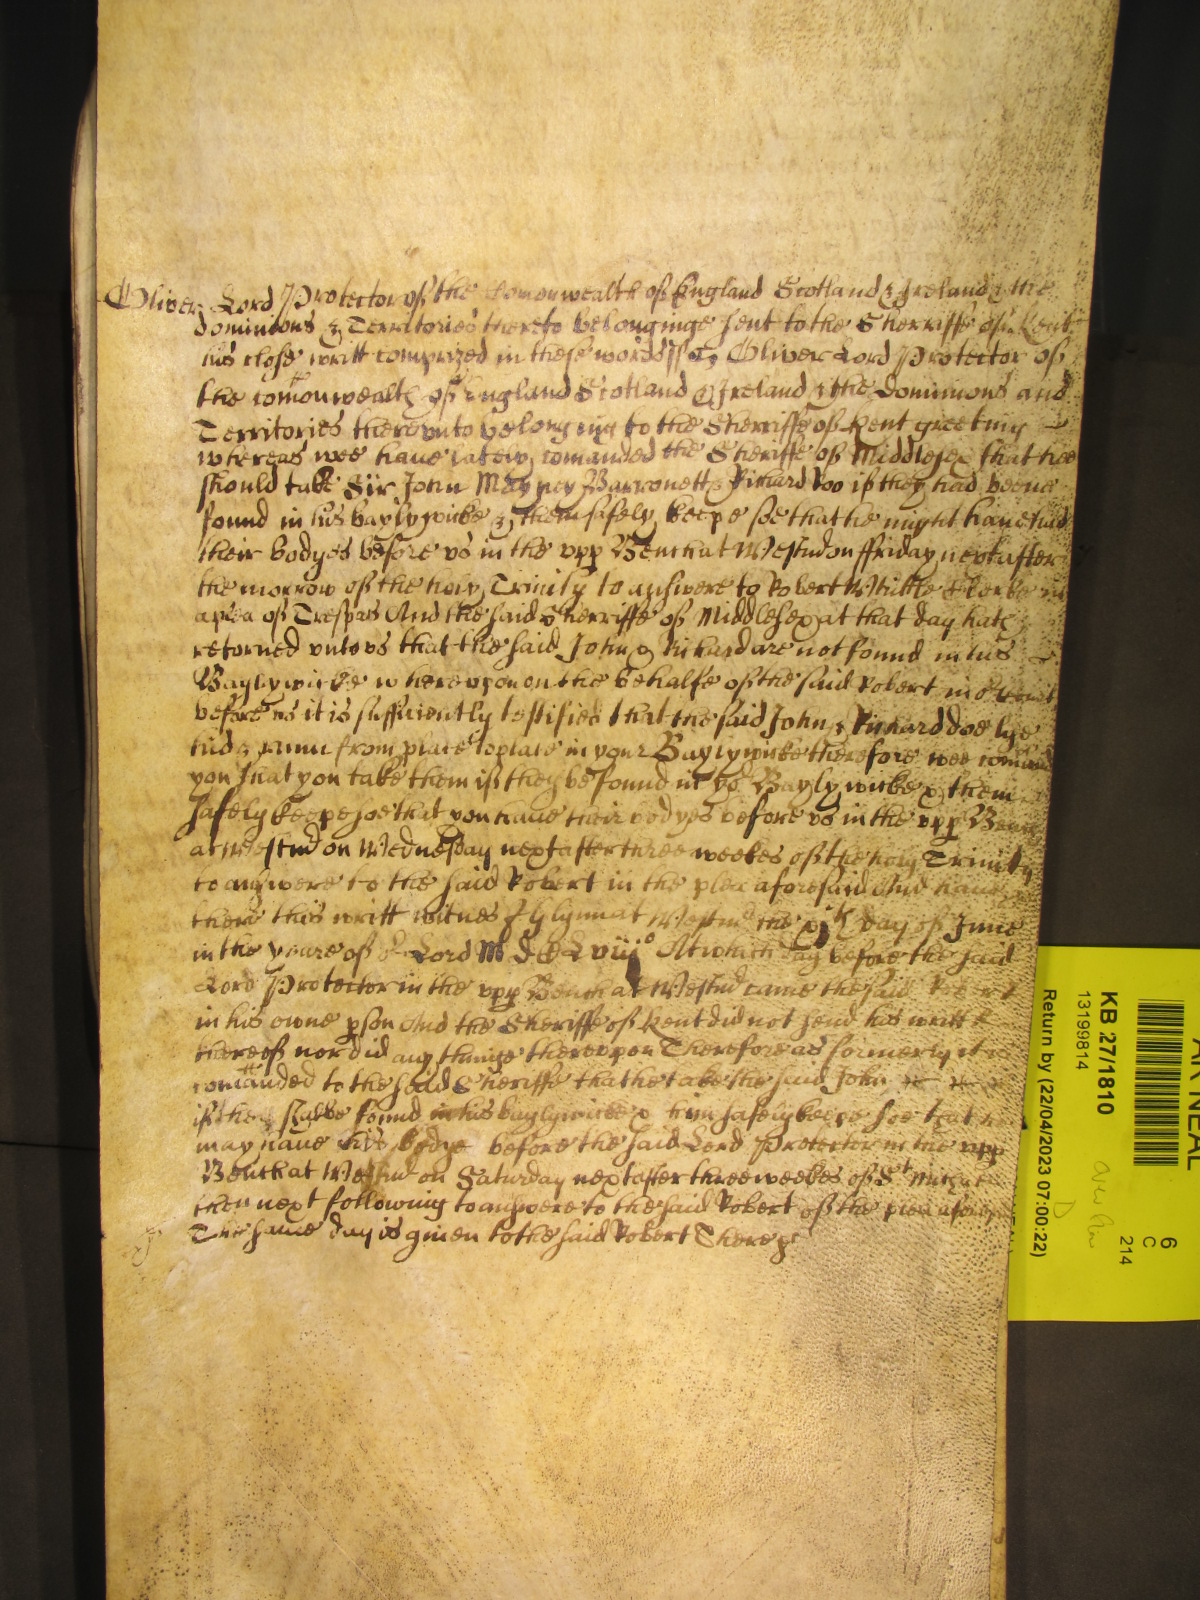 Oliver Lord Protector of the Comonwealth of England Scotland & Ireland & the
dominions & Territories thereto belonginge sent to the Sherriffe of Kent
his close writt comprized in these words ss Oliver Lord Protector of
the comonwealth of England Scotland & Ireland & the Dominions and
Territories therevnto belonging to the Sherriffe of Kent greeting
whereas wee haue lately comanded the Sheriffe of Middlesex that hee
should take Sir John Mayney Barronett & Richard Roo if they had beene
found in his baylywicke & them safely keepe soe that he might haue had
their bodyes before vs in the vpp Bench at Westmd on ffriday next after
the morrow of the holy Trinity to answere to Robert Whittle Clerke in
a plea of Trespas And the said Sherriffe of Middlesex at that day hath
retorned vnto vs that the said John & Richard are not found in his
Baylywicke wherevpon on the behalfe of the said Robert in or Court
before vs it is sufficiently testified that the said John & Richard doe lye
hid & runn from place to place in your Baylywicke therefore wee comand
you That you take them if they be found in yor Baylywicke & them
safely keepe soe that you haue their bodyes before vs in the vpp Bench
at Westmd on Wednesday next after three weekes of the holy Trinity
to answere to the said Robert in the plea aforesaid And haue
there this writt witnes J Glynn at Westmd the xjth day of June
in the yeare of or Lord M D C L viijo At which day before the said
Lord Protector in the vpp Bench at Westmd came the said Robert
in his owne pson And the Sheriffe of Kent did not send his writt
thereof nor did any thinge therevpon Therefore as formerly it is
comanded to the said Sheriffe that he take the said John
if he shalbe found in his baylywicke & him safely keepe soe that he
may haue his bodye before the said Lord Protector in the vpp
Bench at Westmd on Saturday next after three weekes of St Michael
then next following to answere to the said Robert of the plea aforesaid
The same day is giuen to the said Robert There &c
AR NEAL
KB 27/1810
13199814
Return by (22/04/2023 07:00:22)
6
C
214